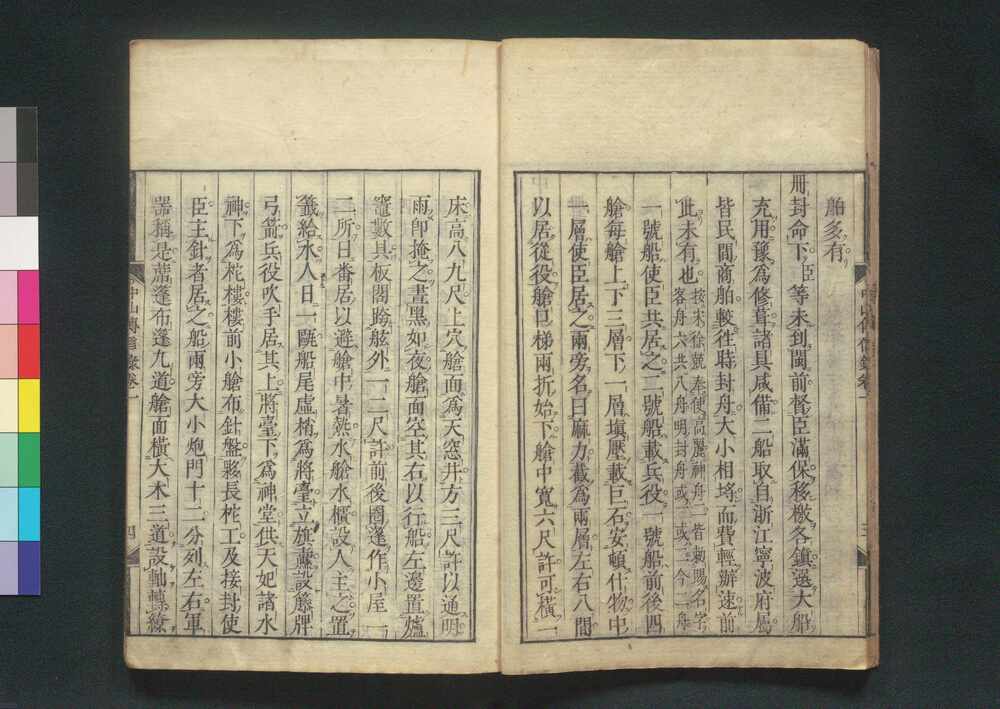 舶多有
冊封命下臣等未到閩前督臣滿保移檄各鎮選大船
充用豫爲修葺諸具咸備二船取自浙江寧波府屬
皆民間商舶較往時封舟大小相埓而費輕辦速前
此未有也按宋徐兢奉使高麗神舟二皆勅賜名字
客舟六共八舟明封舟或二或三今二舟
一號船使臣共居之二號船載兵役一號船前後四
艙每艙上下三層下一層塡壓載巨石安頓什物中
一層使臣居之兩旁名曰麻力截爲兩層左右八間
以居從役艙口梯兩折始下艙中寬六尺許可橫一
中山傳信錄卷一
三
床高八九尺上穴艙面爲天窓井方三尺許以通明
雨卽掩之晝黑如夜艙面空其右以行船左邊置爐
竈數具板閣跨舷外一二尺許前後圈篷作小屋一
二所日番居以避艙中暑熱水艙水櫃設人主之置
籤給水人日一甌船尾虛梢爲將臺立旗纛設籐牌
弓箭兵役吹手居其上將臺下爲神堂供天妃諸水
神下爲柁樓樓前小艙布針盤夥長柁工及接封使
臣主針者居之船兩旁大小炮門十二分列左右軍
器稱是蓆篷布篷九道艙面橫大木三道設軸轉繚
中山傳信錄卷一
四